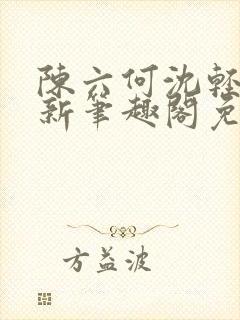 陳六何沈輕
新筆趣閣免
方益波